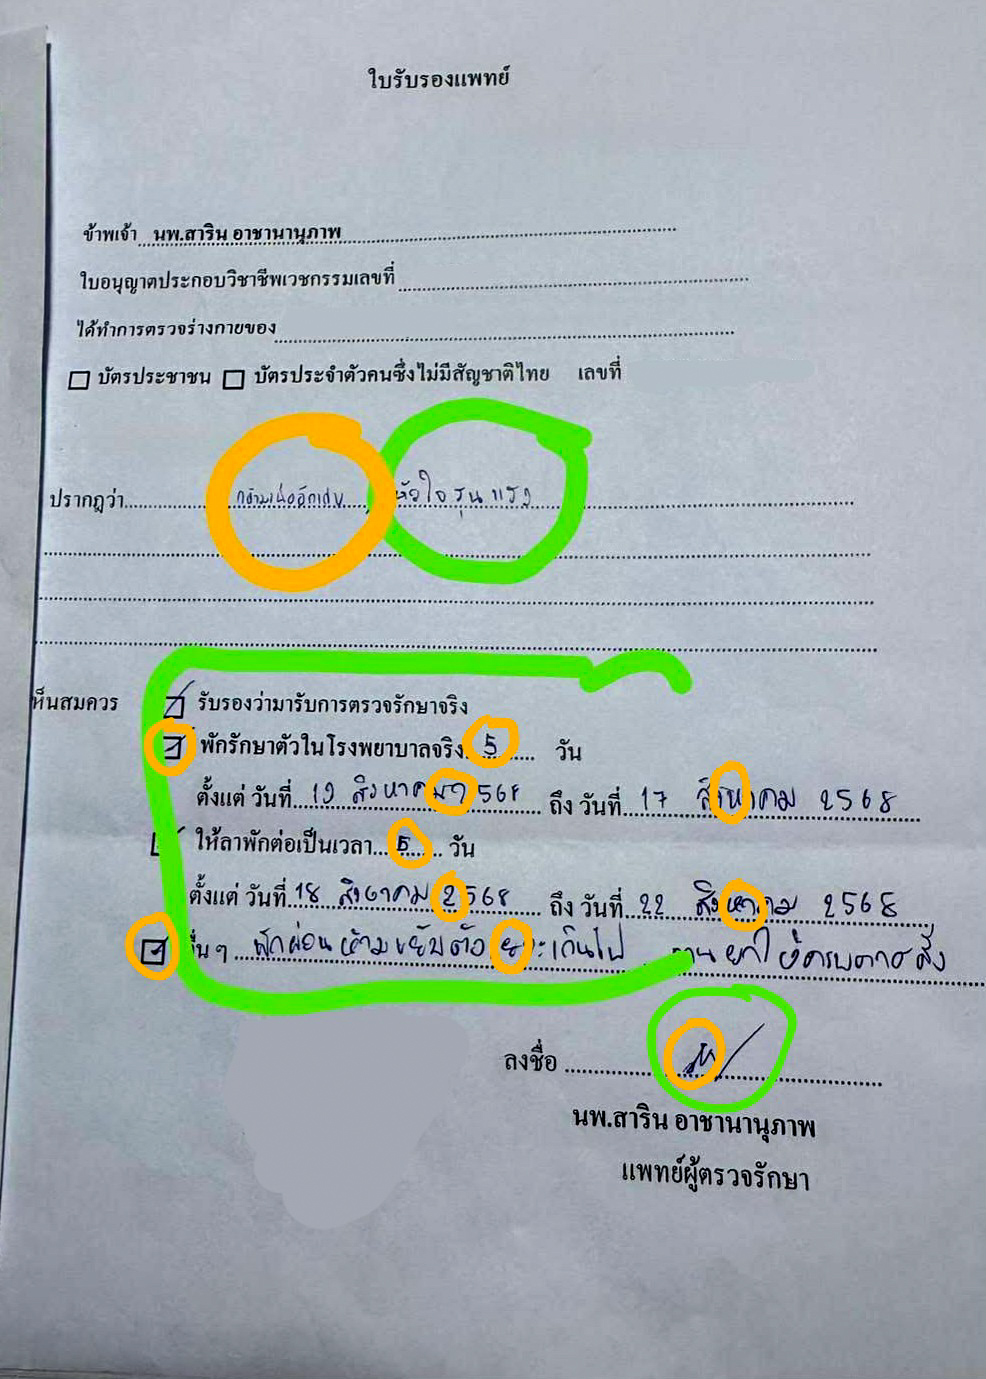 ใบรับรองแพทย์
ข้าพเจ้า นพ.สาริน อาชานานุภาพ
ใบอนุญาตประกอบวิชาชีพเวชกรรมเลขที่
ได้ทำการตรวจร่างกายของ
บัตรประชาชน บัตรประจำตัวคนซึ่งไม่มีสัญชาติไทย เลขที่
ปรากฏว่า กล้ามเนื้ออักเสบ หัวใจรุนแรง
ห็นสมควร รับรองว่ามารับการตรวจรักษาจริง
พักรักษาตัวในโรงพยาบาลจริง 5 วัน
ตั้งแต่ วันที่ 13 สิงหาคม 2568 ถึง วันที่ 17 สิงหาคม 2568
ให้ลาพักต่อเป็นเวลา 5 วัน
ตั้งแต่ วันที่ 18 สิงหาคม 2568 ถึง วันที่ 22 สิงหาคม 2568
ื่นๆ พักผ่อน ห้ามขยับตัวเยอะเกินไป ทานยาให้ครบตามสั่ง
ลงชื่อ
นพ.สาริน อาชานานุภาพ
แพทย์ผู้ตรวจรักษา